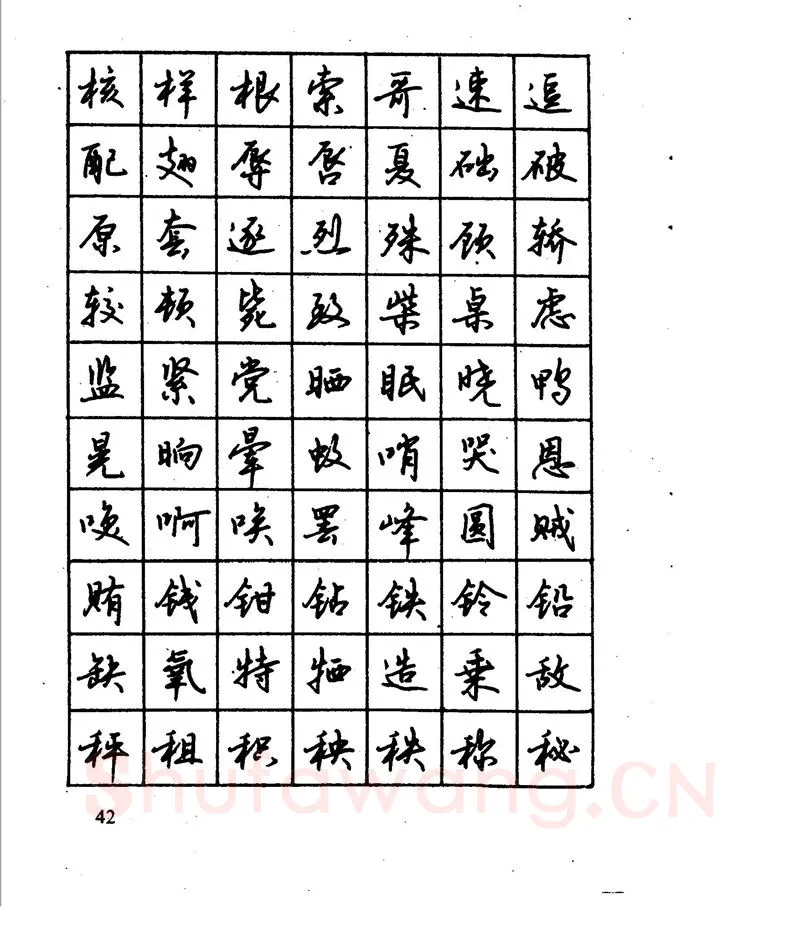 核样根索哥速逗
配翅辱唇夏础破
原套逐烈殊顾轿
较顿毙致柴桌虑
监紧党晒眠晓鸭
晃晌晕蚊哨哭恩
唤啊唉罢峰圆贼
贿钱钳钻铁铃铅
缺氧特牺造乘敌
秤租积秧秩称秘
Shufawang.CN
42